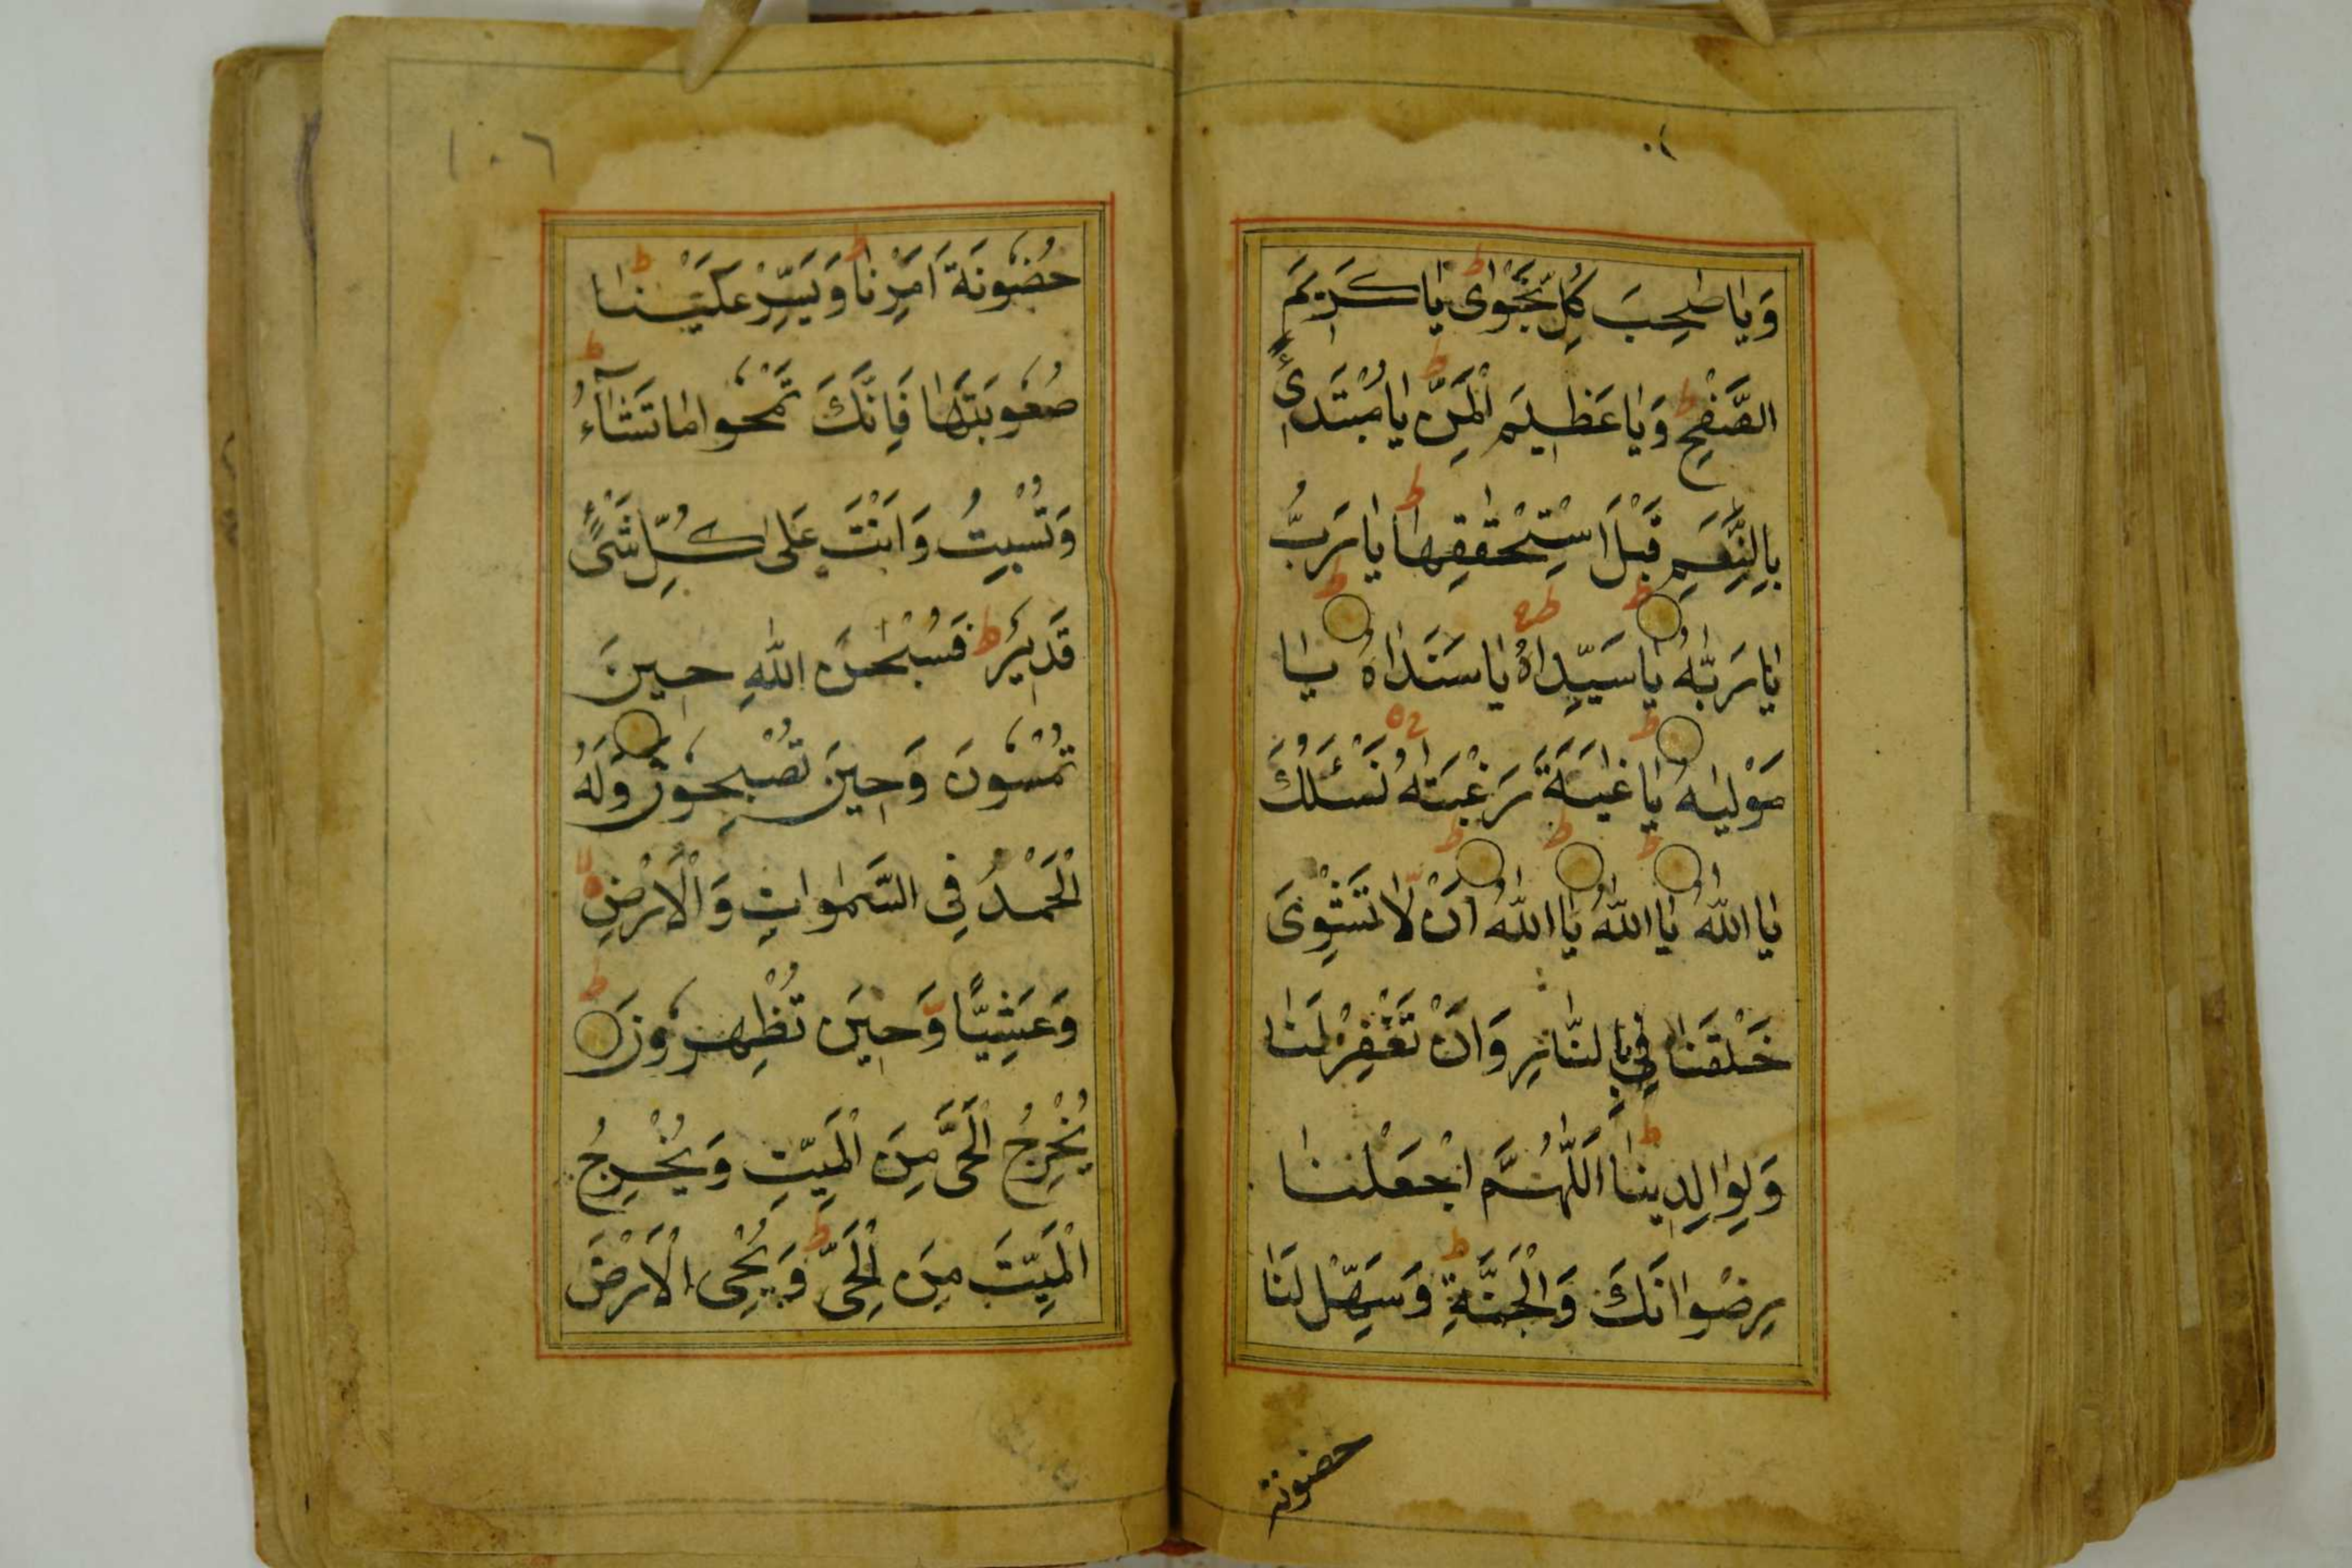 وَيٰا صٰحِبَ كُلِّ نَجْوٰى يٰا كَرِيمَ
الصَّفْحِ وَيٰا عَظِيمَ الْمَنِّ يٰا مُبْتَدِئً
بِالنِّعَمِ قَبْلَ اسْتِحْقٰقِهٰا يٰا رَبُّ
يٰا رَبّٰهُ يٰا سَيِّدٰاهُ يٰا سَنَدٰاهُ يٰا
مَوْلٰيٰهُ يٰا غٰيَةَ رَغْبَتٰهُ نَسْئَلُكَ
يٰا اللّٰهُ يٰا اللّٰهُ يٰا اللّٰهُ اَنْ لّٰا تَشْوِىَ
خَلْقَنٰا فِي بِالنّٰارِ وَاَنْ تَغْفِرْ لَنٰا
وَلِوٰالِدِينٰا اَللّٰهُمَّ اجْعَلْنٰا
بِرِضْوَانَكَ وَالْجَنَّةِ وَسَهِّلْ لَنَا
حضونة
١٠٦
حُضُونَةَ اَمْرِنٰا وَيَسِّرْ عَلَيْنٰا
صُعُوبَتَهٰا فَاِنَّكَ تَمْحُوا مٰا تَشَآءُ
وَتُسْبِيتُ وَاَنْتَ عَلٰى كُلِّ شَىْءٍ
قَدِيْرٌ فَسُبْحٰنَ اللّٰهِ حِينَ
تُمْسُونَ وَحِينَ تُصْبِحُونَ وَلَهُ
الْحَمْدُ فِي السَّمٰوٰاتِ وَالْاَرْضِ
وَعَشِيًّا وَّحِيْنَ تُظْهِرُونَ
يُخْرِجُ الْحَىَّ مِنَ الْمَيِّتِ وَيُخْرِجُ
الْمَيِّتَ مِنَ الْحَىِّ وَيُحْيِى الْاَرْضَ